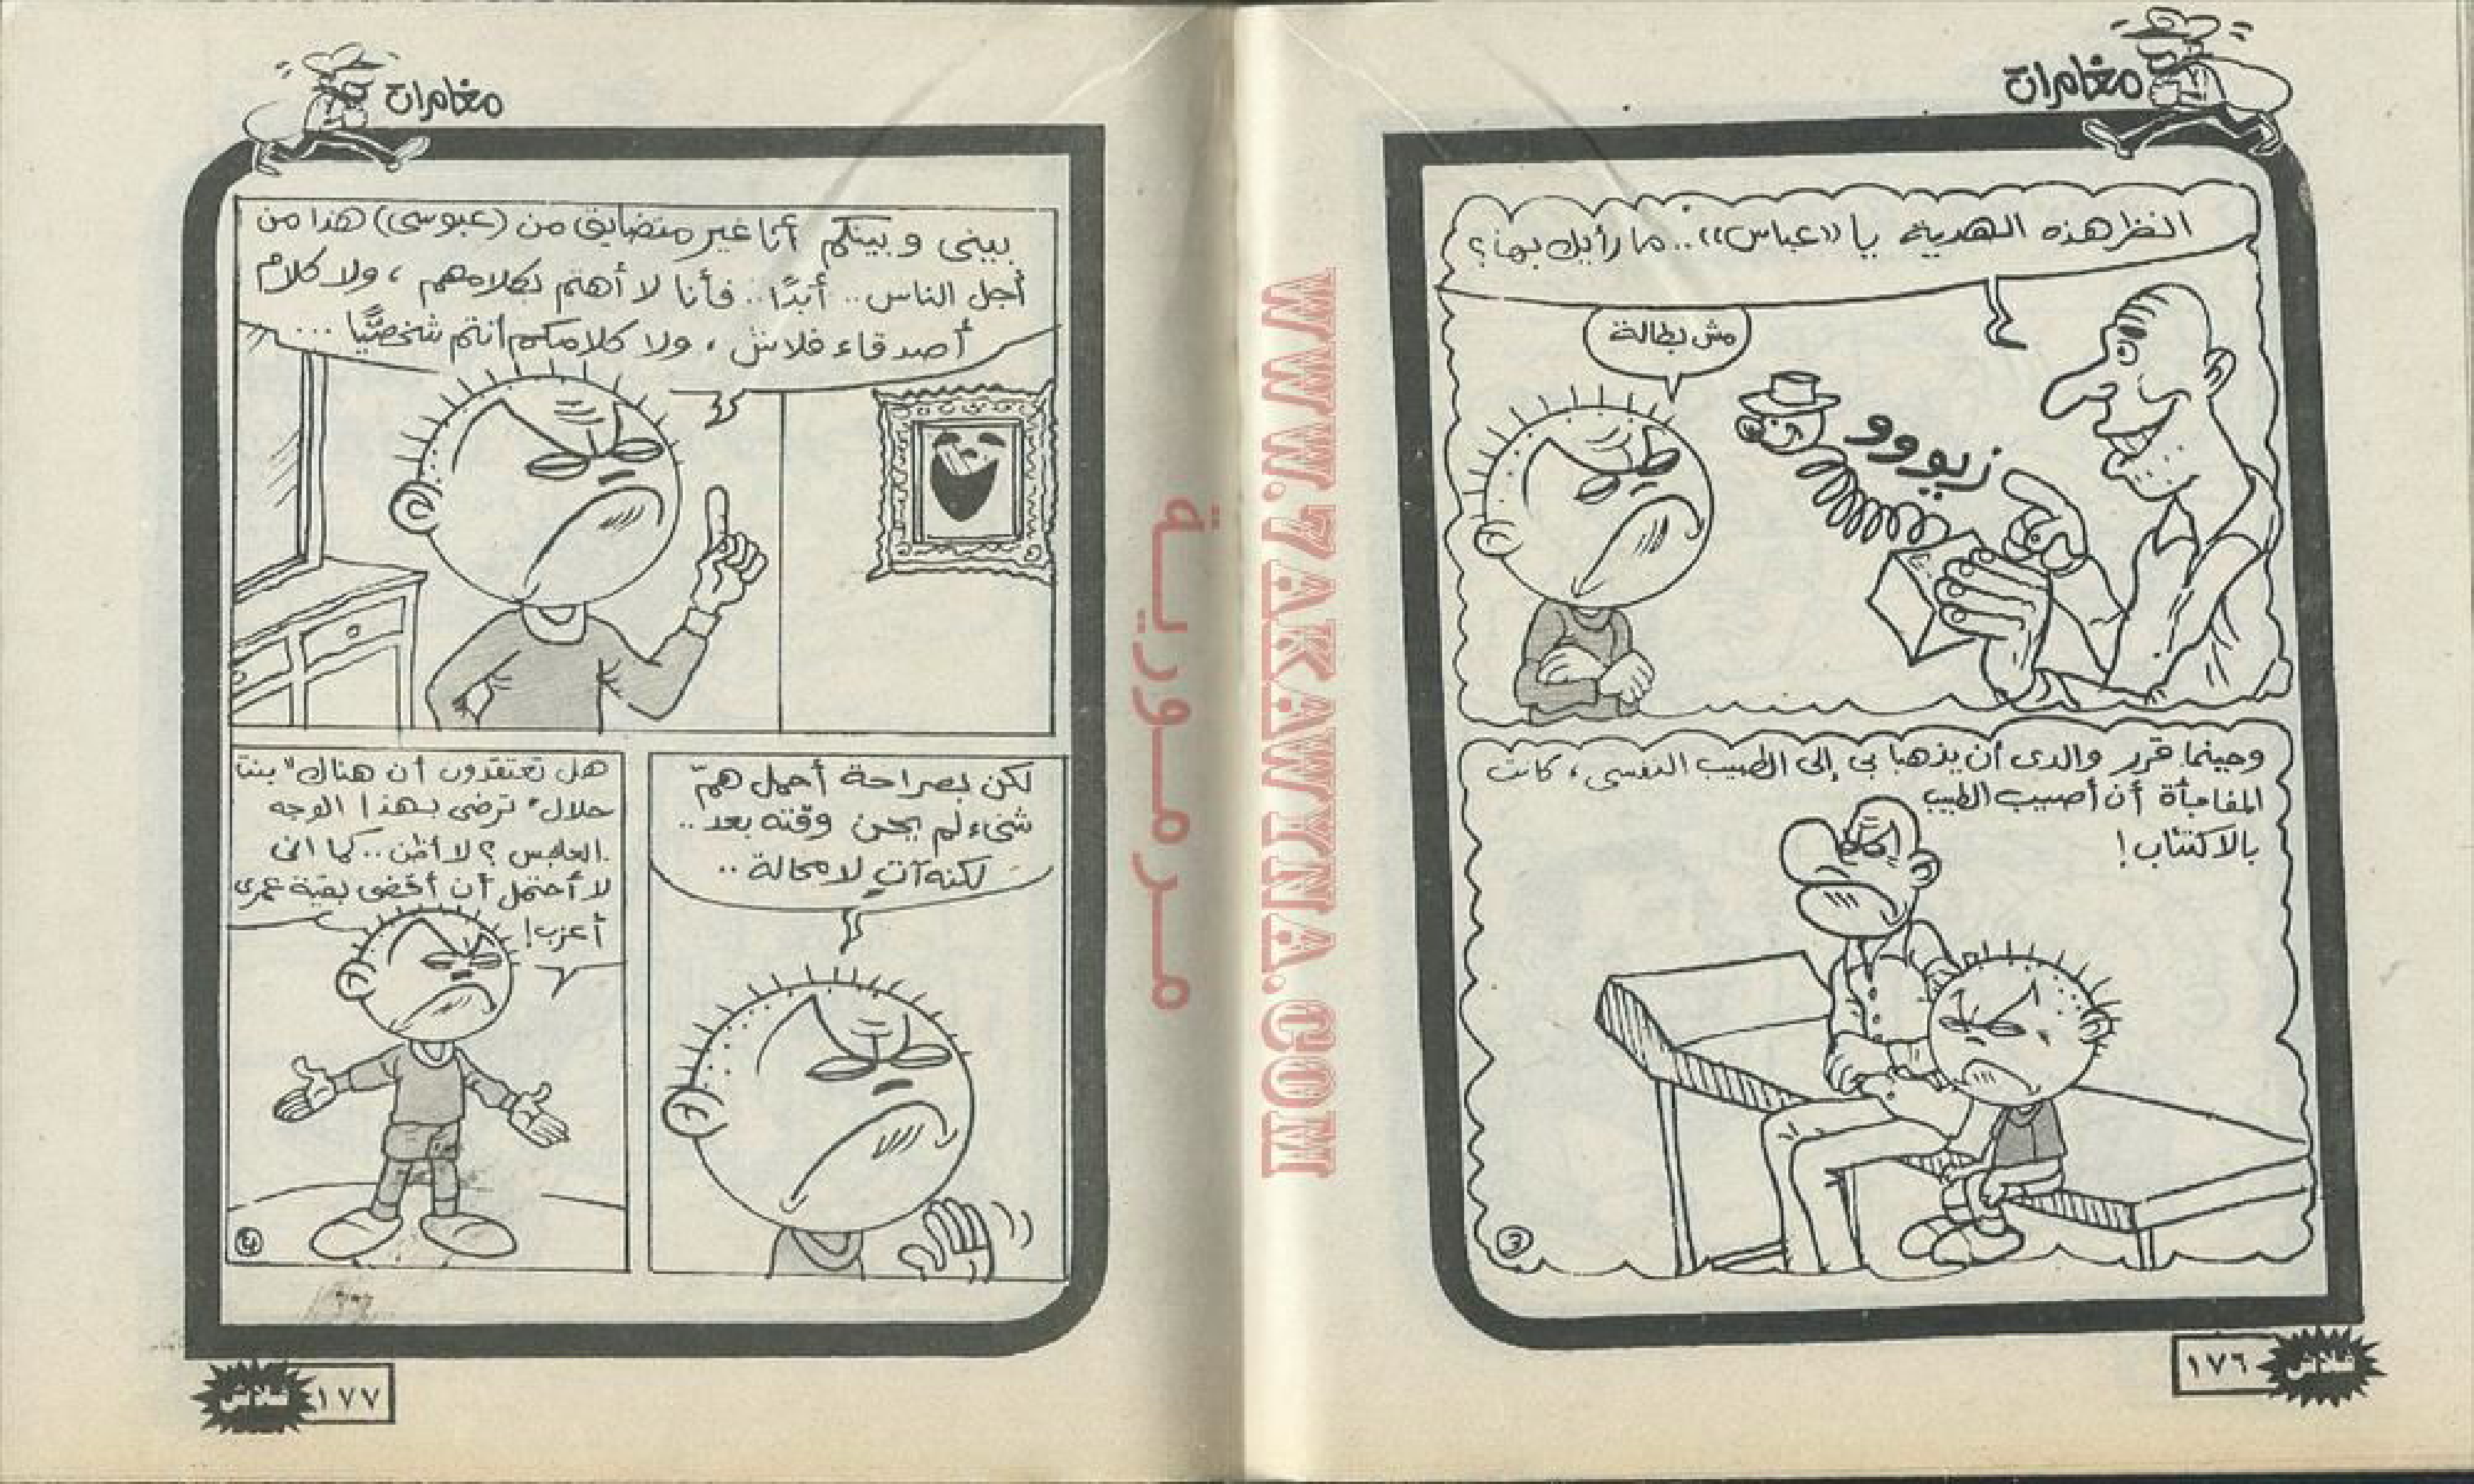 مغامرات
انظر هذه الهدية يا «عباس».. ما رأيك بها؟
مش بطالة
زيووو
وحينما قرر والدى أن يذهبا بى إلى الطبيب النفسى، كانت
المفاجأة أن أصيب الطبيب
بالاكتئاب!
٣
١٧٦
فلاش
مغامرات
بينى وبينكم أنا غير متضايق من (عبوسى) هذا من
أجل الناس.. أبدًا.. فأنا لا أهتم بكلامهم، ولا كلام
أصدقاء فلاش، ولا كلامكم انتم شخصيًّا...
لكن بصراحة أحمل همّ
شىء لم يحن وقته بعد..
لكنه آتٍ لا محالة..
هل تعتقدون أن هناك "بنت
حلال" ترضى بهذا الوجه
العابس؟ لا أظن.. كما انى
لا أحتمل أن أقضى بقية عمرى
أعزب!
٤
١٧٧
فلاش
مرمورية
WWW.7AKAWINA.COM